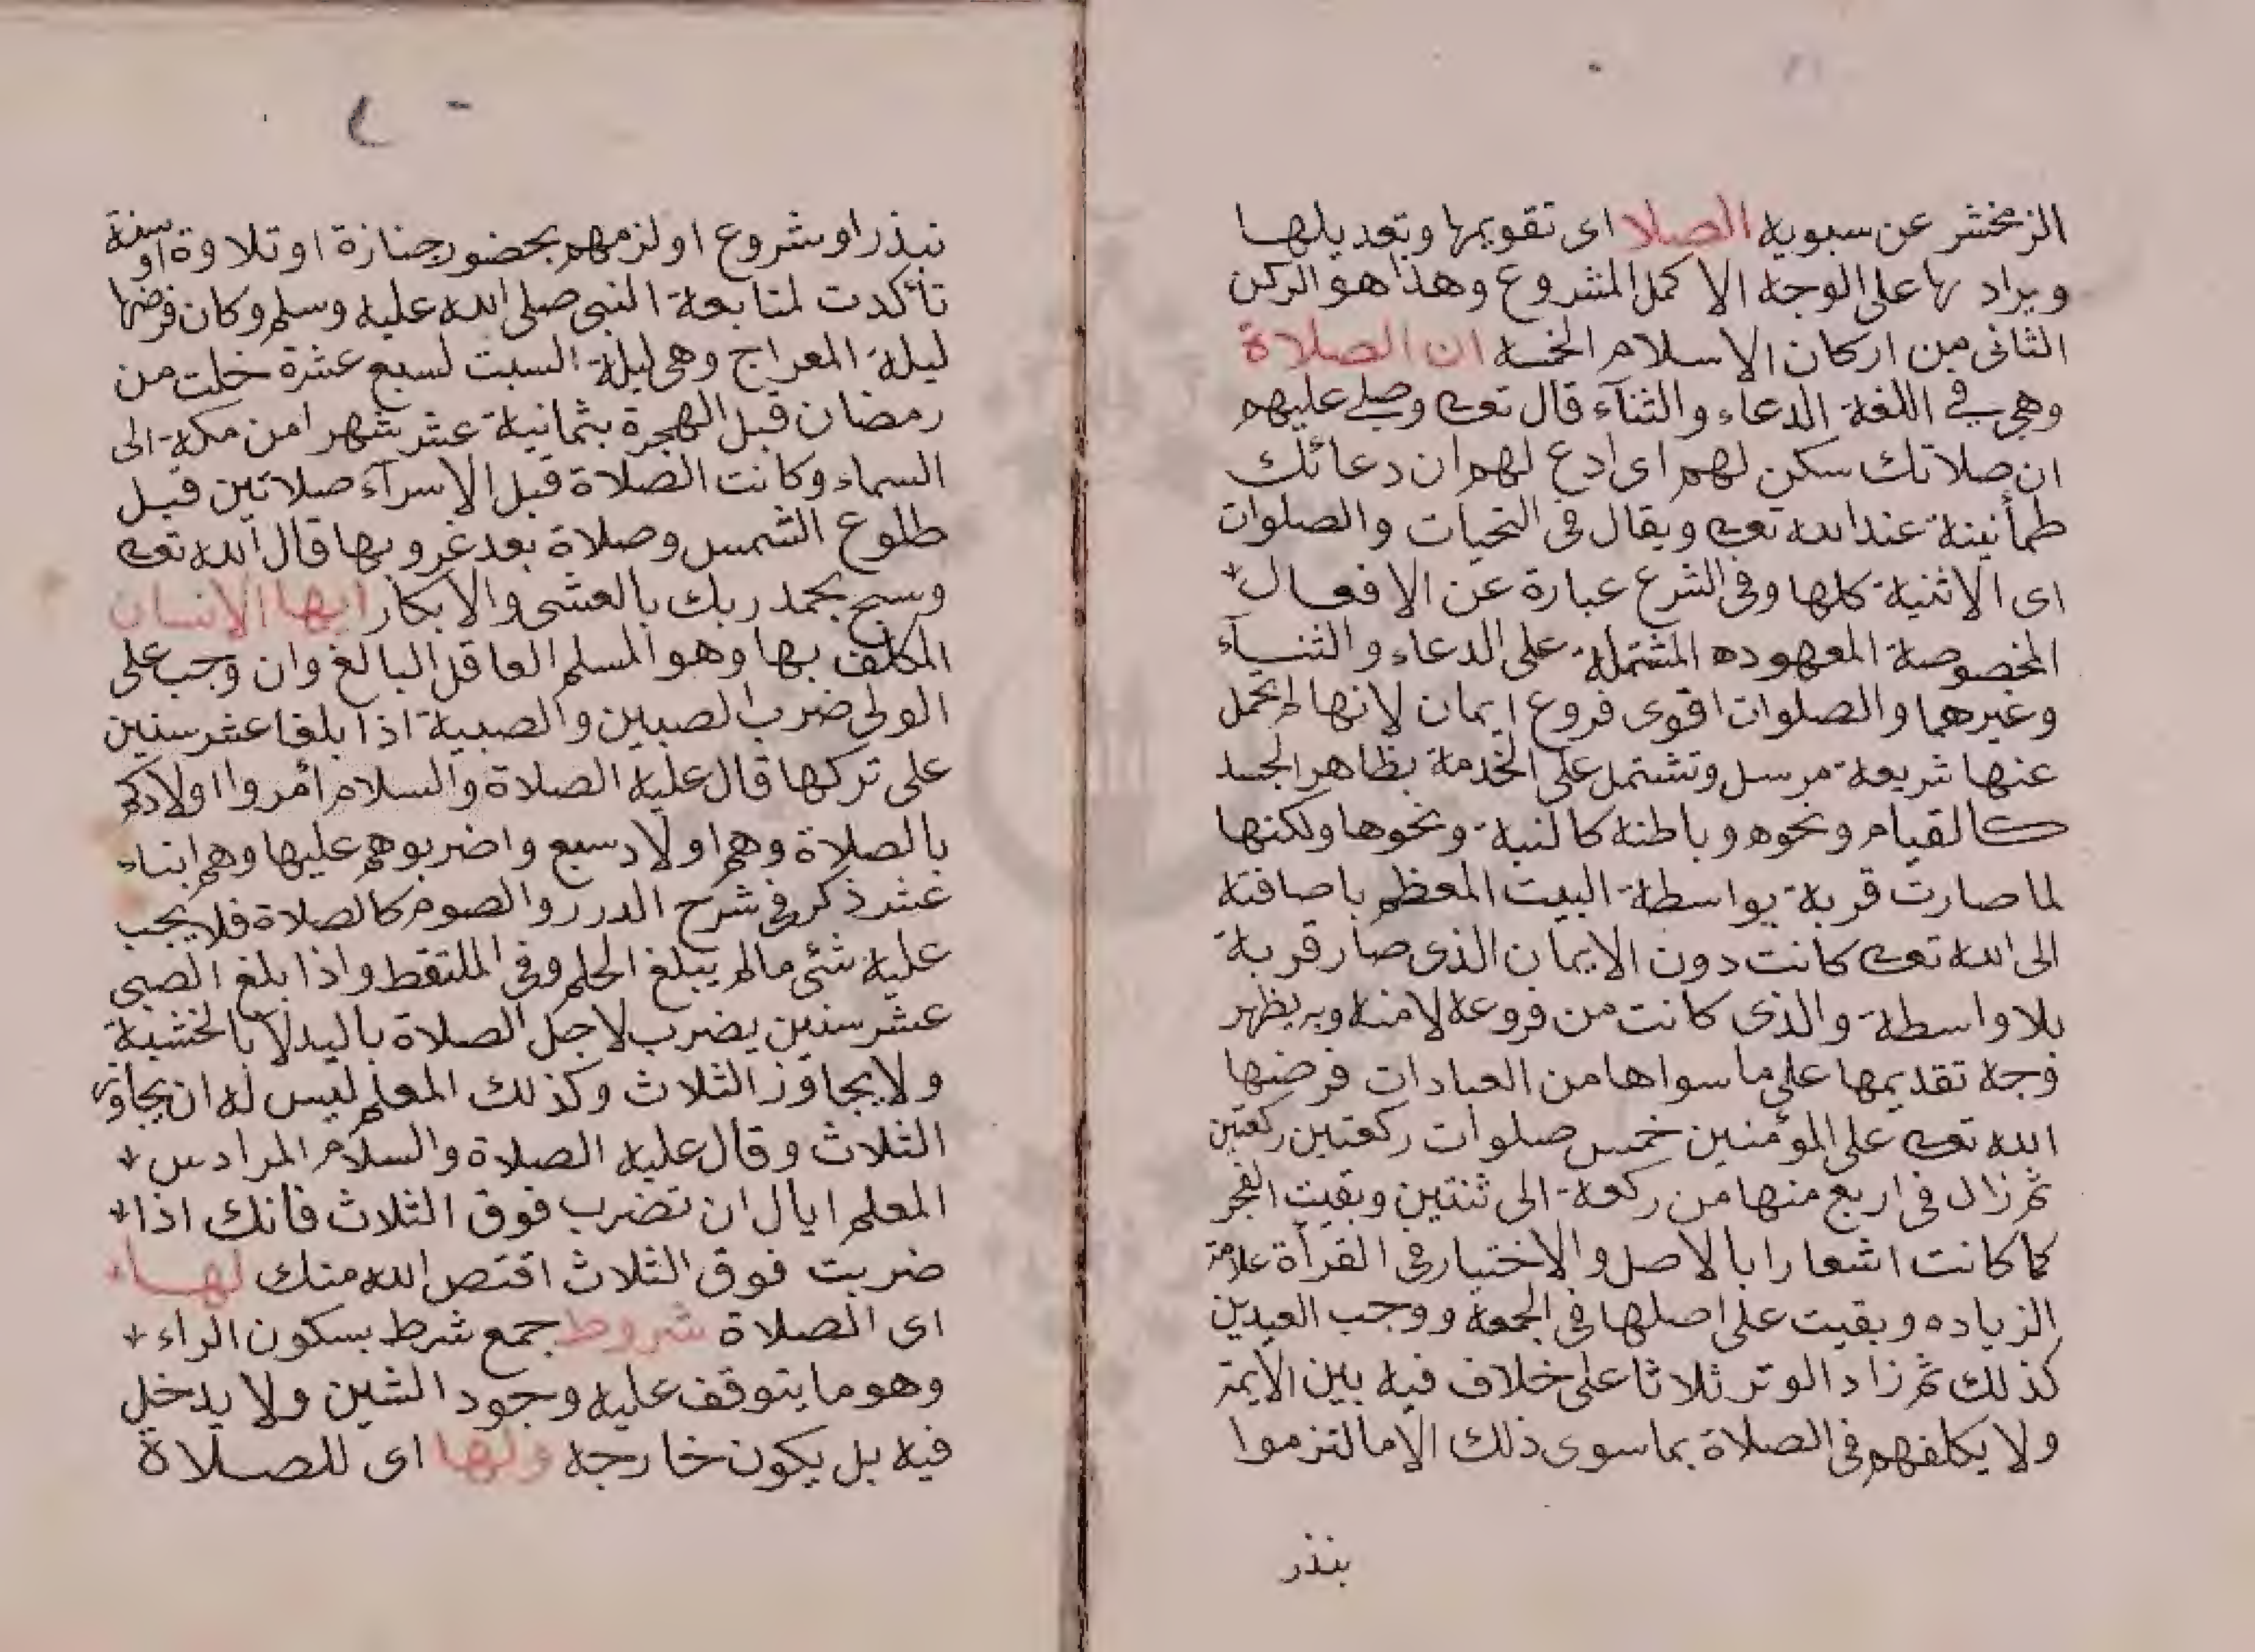 الزمخشر عن سبويه الصلا اى تقويمها وتعديلها
ويراد بها على الوجه الاكمل المشروع وهذا هو الركن
الثانى من اركان الاسلام الخمسه ان الصلاة
وهي في اللغة الدعاء والثنآء قال تعالى وصلى عليهم
ان صلاتك سكن لهم اى ادع لهم ان دعائك
طمأنينة عند الله تعالى ويقال فى التحيات والصلوات
اى الاثنية كلها وفى الشرع عبارة عن الافعال
المخصوصة المعهوده المشتملة على الدعاء والثنآء
وغيرهما والصلوات اقوى فروع ايمان لانها لم يخل
عنها شريعة مرسل وتشتمل على الخدمة بظاهر الجسد
كالقيام ونحوه وباطنه كالنية ونحوها ولكنها
لما صارت قربة بواسطة البيت المعظم باضافته
الى الله تعالى كانت دون الايمان الذى صار قربة
بلا واسطة والذى كانت من فروعه لا منه وبه يظهر
وجه تقديمها على ما سواها من العبادات فرضها
الله تعالى على المؤمنين خمس صلوات ركعتين ركعتين
ثم زال فى اربع منها من ركعة الى ثنتين وبقيت الفجر
كما كانت اشعارا بالاصل والاختيار فى القرأة علامة
الزياده وبقيت على اصلها فى الجمعة ووجب العيدين
كذلك ثم زاد الوتر ثلاثا على خلاف فيه بين الايمة
ولا يكلفهم فى الصلاة بما سوى ذلك الا ما التزموا
بنذر
نبذر او شروع او لزمهم بحضور جنازة او تلاوة او سنة
تأكدت لمتابعة النبى صلى الله عليه وسلم وكان فرضها
ليلة المعراج وهى ليلة السبت لسبع عشرة خلت من
رمضان قبل الهجرة بثمانية عشر شهرا من مكة الى
السماء وكانت الصلاة قبل الاسرآء صلاتين قبل
طلوع الشمس وصلاة بعد غروبها قال الله تعالى
وسبح بحمد ربك بالعشى والابكار ايها الانسان
المكلف بها وهو المسلم العاقل البالغ وان وجب على
الولى ضرب الصبين والصبية اذا بلغا عشر سنين
على تركها قال عليه الصلاة والسلام أمروا اولادكم
بالصلاة وهم اولاد سبع واضربوهم عليها وهم ابناء
عشر ذكر فى شرح الدرر والصوم كالصلاة فلا يجب
عليه شئى مالم يبلغ الحلم وفى الملتقط واذا بلغ الصبى
عشر سنين يضرب لاجل الصلاة باليد لا بالخشبة
ولا يجاوز الثلاث وكذلك المعلم ليس له ان يجاوز
الثلاث وقال عليه الصلاة والسلام المرادس
المعلم ايال ان تضرب فوق الثلاث فانك اذا
ضربت فوق الثلاث اقتص الله منك لها
اى الصلاة شروط جمع شرط بسكون الراء
وهو ما يتوقف عليه وجود الشين ولا يدخل
فيه بل يكون خارجه ولها اى للصلاة